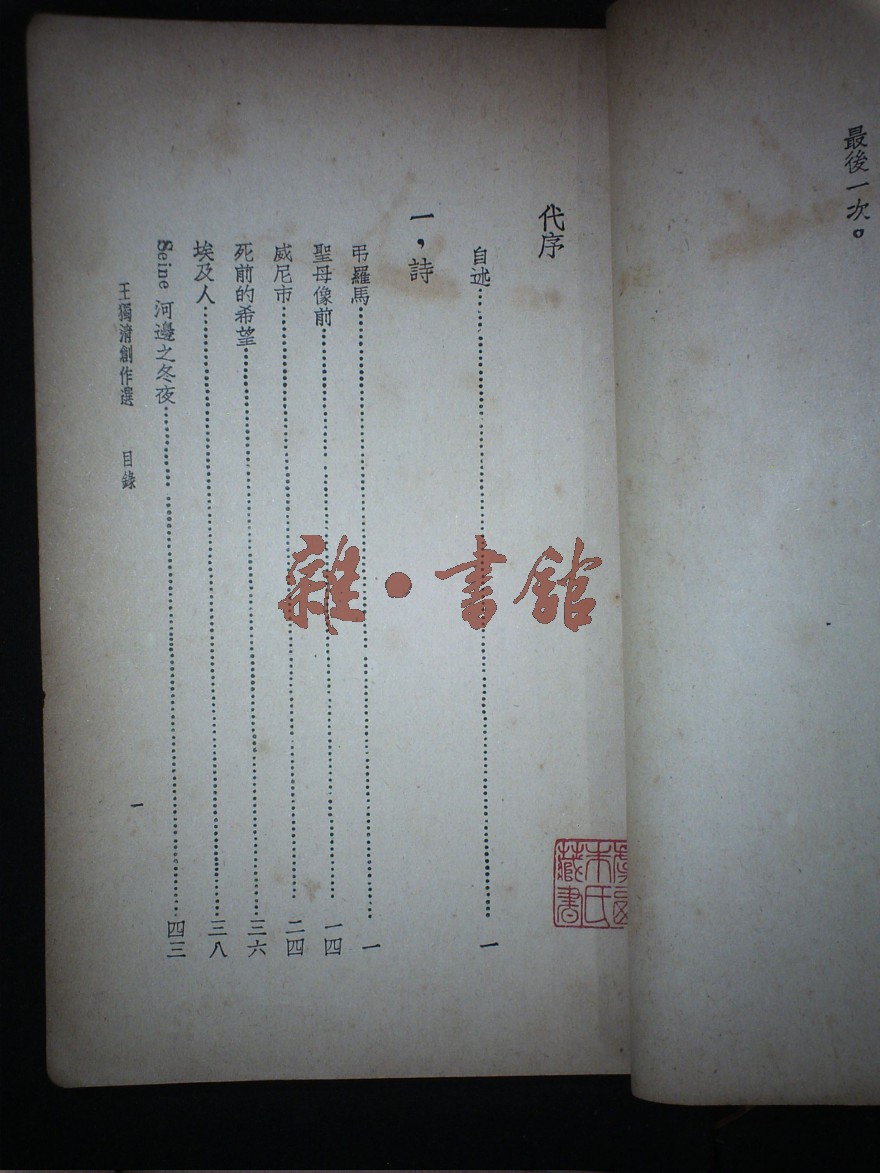 最後一次。
代序
自述……一
一，詩
弔羅馬……一
聖母像前……一四
威尼市……二四
死前的希望……三六
埃及人……三八
Seine 河邊之冬夜……四三
王獨清創作選 目錄 一
雜·書館
朱氏
藏書